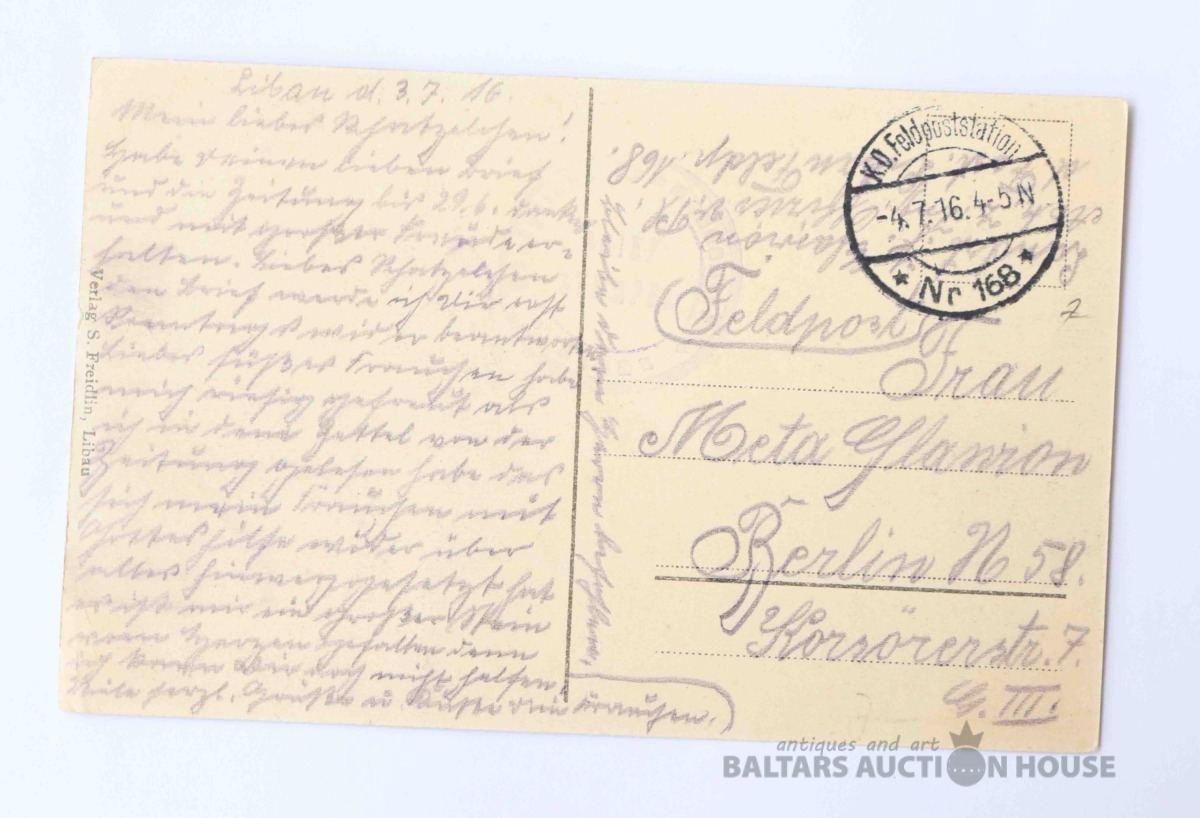 Libau d. 3.7.16.
Mein liebes Schatzelchen!
Habe Deinen lieben Brief
und die Zeitung bis 29.6. dankd
und mit großer Freude er-
halten. Liebes Schatzelchen
den Brief werde ich Dir erst
wieder beantworten
Liebes süßes Frauchen habe
mich riesig gefreut als
ich in dem Zettel von der
Zeitung gelesen habe das
sich mein Frauchen mit
Gottes Hilfe wieder über
alles hinweggesetzt hat
es ist mir ein großer Stein
vom Herzen gefallen denn
ich kann Dir doch nicht helfen
Viele herzl. Grüße u. Küsse Dein Frauchen.
Verlag S. Freidlin, Libau
K.D. Feldpoststation
-4.7.16. 4-5 N
* Nr 168 *
Feldp. 168.
Feldpost
Frau
Meta Glawion
Berlin N 58.
Korsörerstr. 7.
G. III.
7
antiques and art
BALTARS AUCTION HOUSE